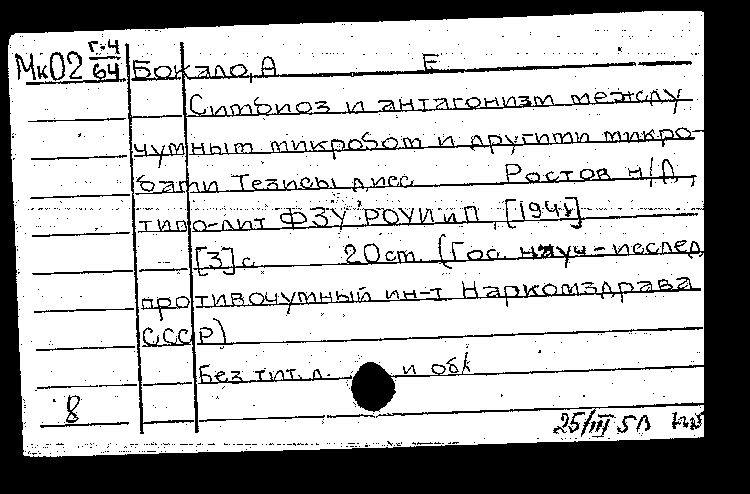 Мк02 Г-4/64 Бокало, А Е
Симбиоз и антагонизм между
чумным микробом и другими микро-
бами Тезисы дисс Ростов н/Д,
типо-лит ФЗУ РОУИиП, [1941]
[3] с 20 см. (Гос. науч-исслед
противочумный ин-т Наркомздрава
СССР)
Без тит. л. и обл
8
25/III 5